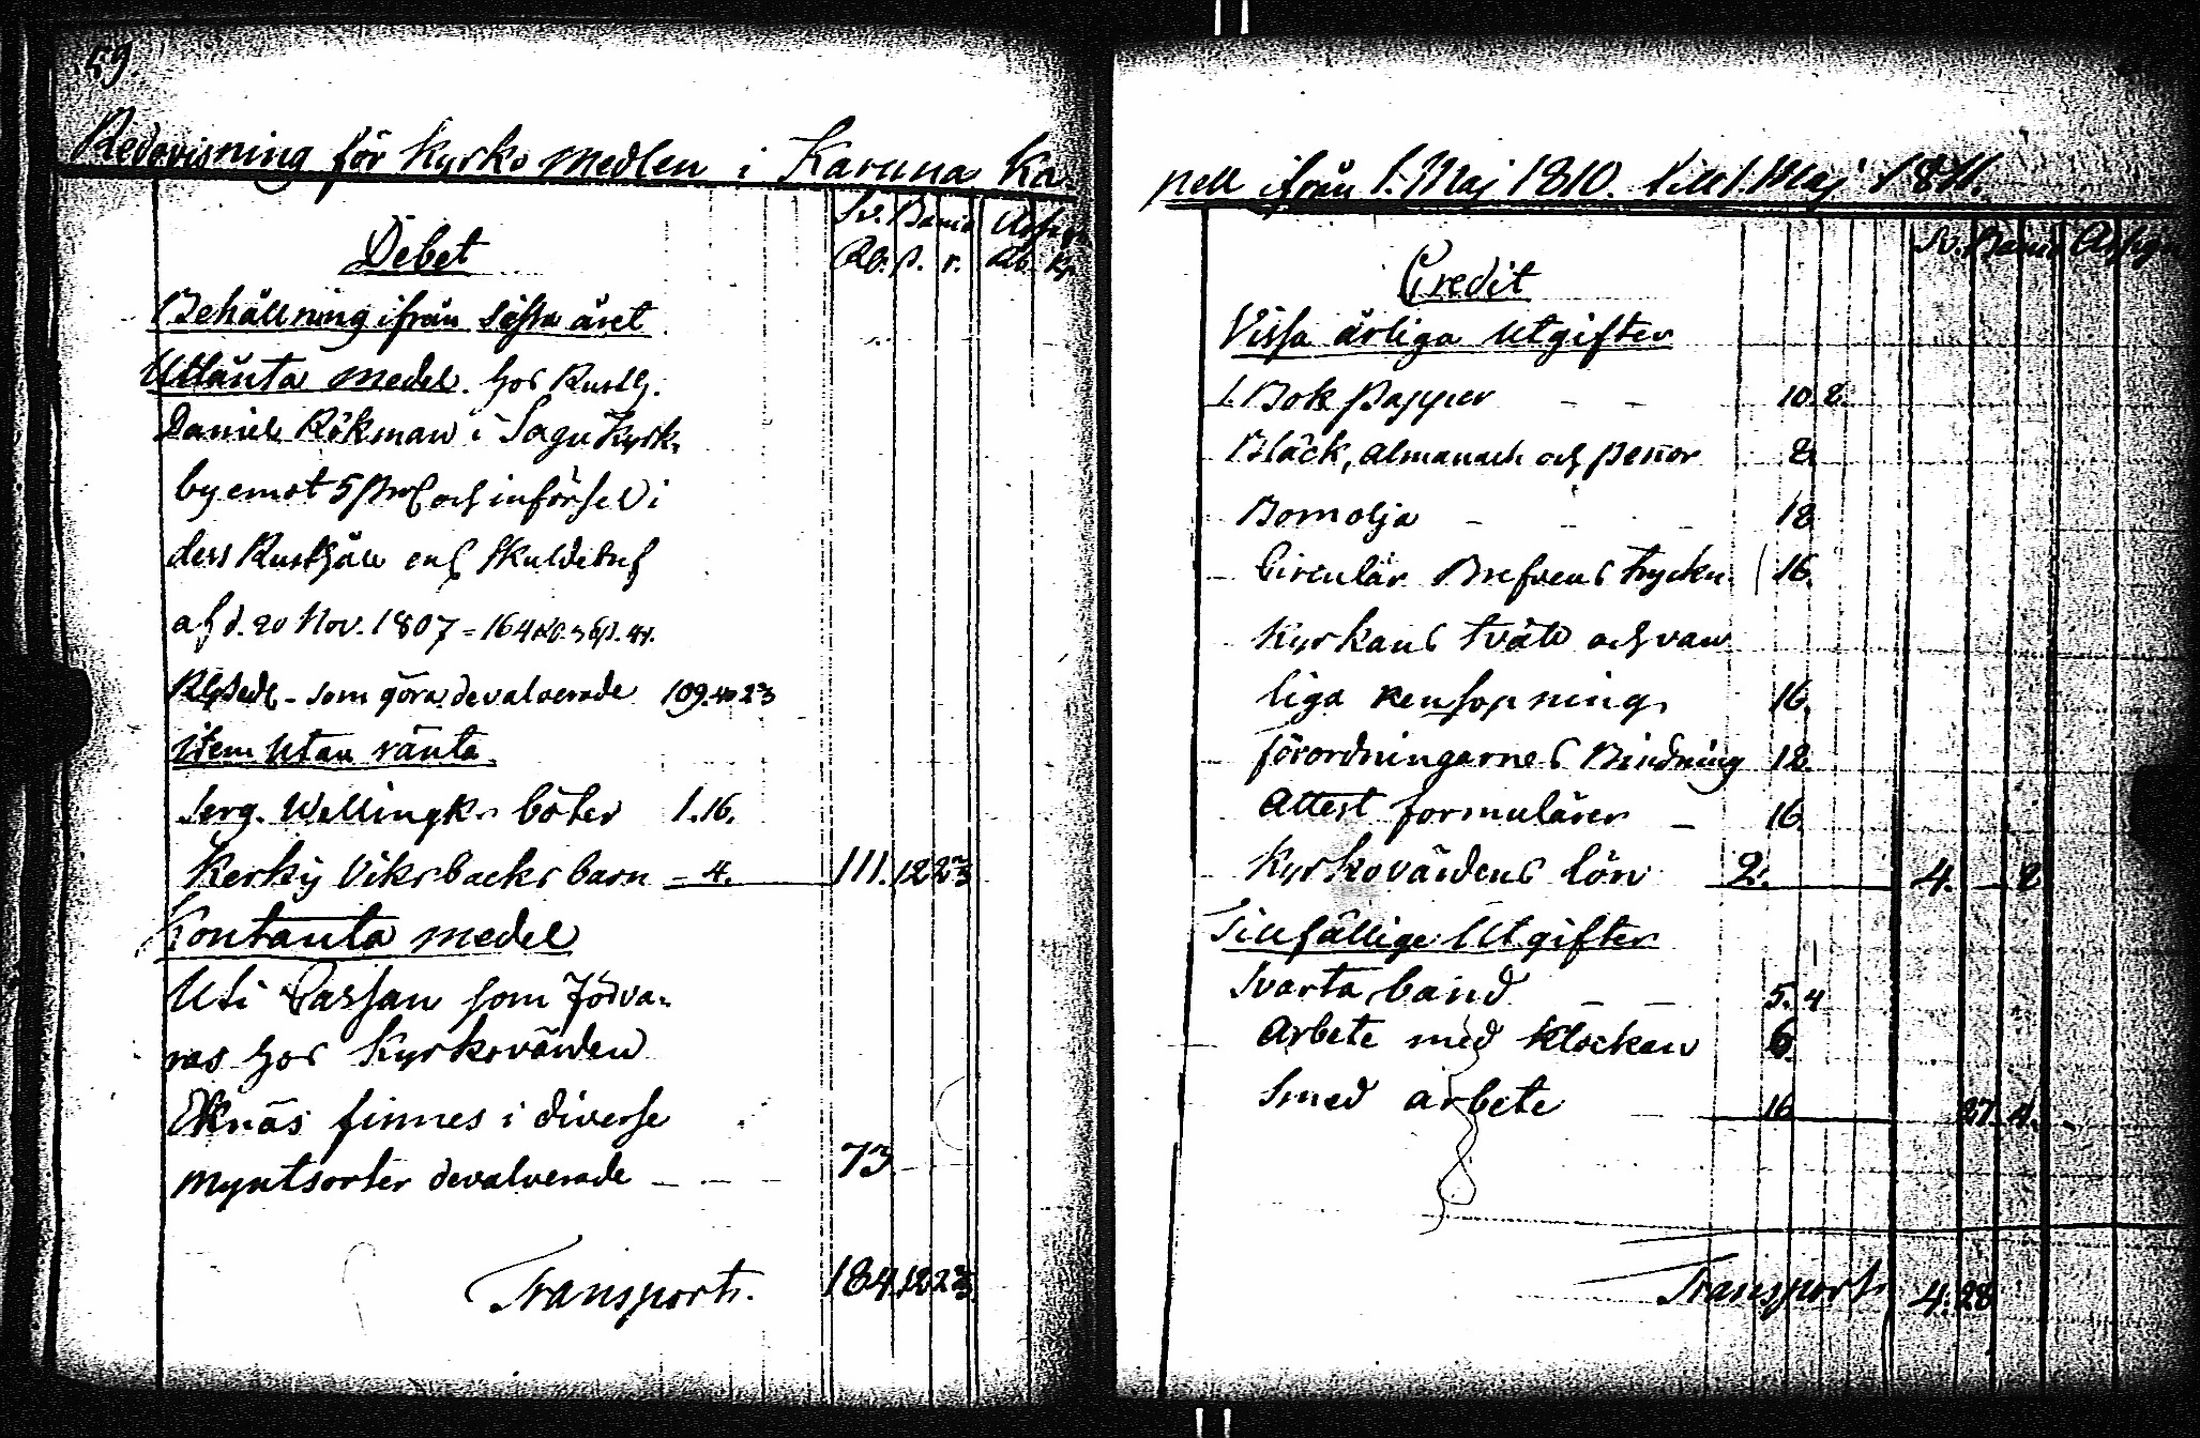 59.
Redovisning för Kyrko Medlen i Karuna Ka
Sv. Banco Assign
Debet
Rd. ß. r. Rb. Kp.
Behållning ifrån sista året
Utlånta medel. hos Rusth.
Daniel Rökman i Sagu Kyrk-
by emot 5 Proc och införsel i
dess Rusthåll enl Skuldebref
af d. 20 Nov. 1807 = 164
Rgsedl - som göra devalverade 109.40 2 2/3
item utan ränta
Serg. Wellingks böter 1.16.
Kerky Viksbacks barn - 4. 111.12 2 2/3
Kontanta medel
Uti Cassan som förva-
ras hos Kyrkovärden
Eknäs finnes i diverse
Myntsorter devalverade - - - 73
Transport. 184.12 2 2/3
pell ifrån 1. Maj 1810. till 1. Maj 1811.
Sv. Banco Assign
Credit
Vissa årliga Utgifter
1. Bok Papper - - 10. 8.
Bläck, Almanach och Pennor 8.
Bomolja - - - 18
Circulär Brefvens tryckn. 16.
Kyrkans tvätt och van
liga rensopning 16.
Förordningarnes Bindning 12.
Attest formulärer - 16.
Kyrkovärdens lön 2. 4. - 8
Tillfällige Utgifter
Svarta band - - 5. 4
Arbete med Klockan 6.
Smed arbete - 16 27. 4. -
Transport 4. 28